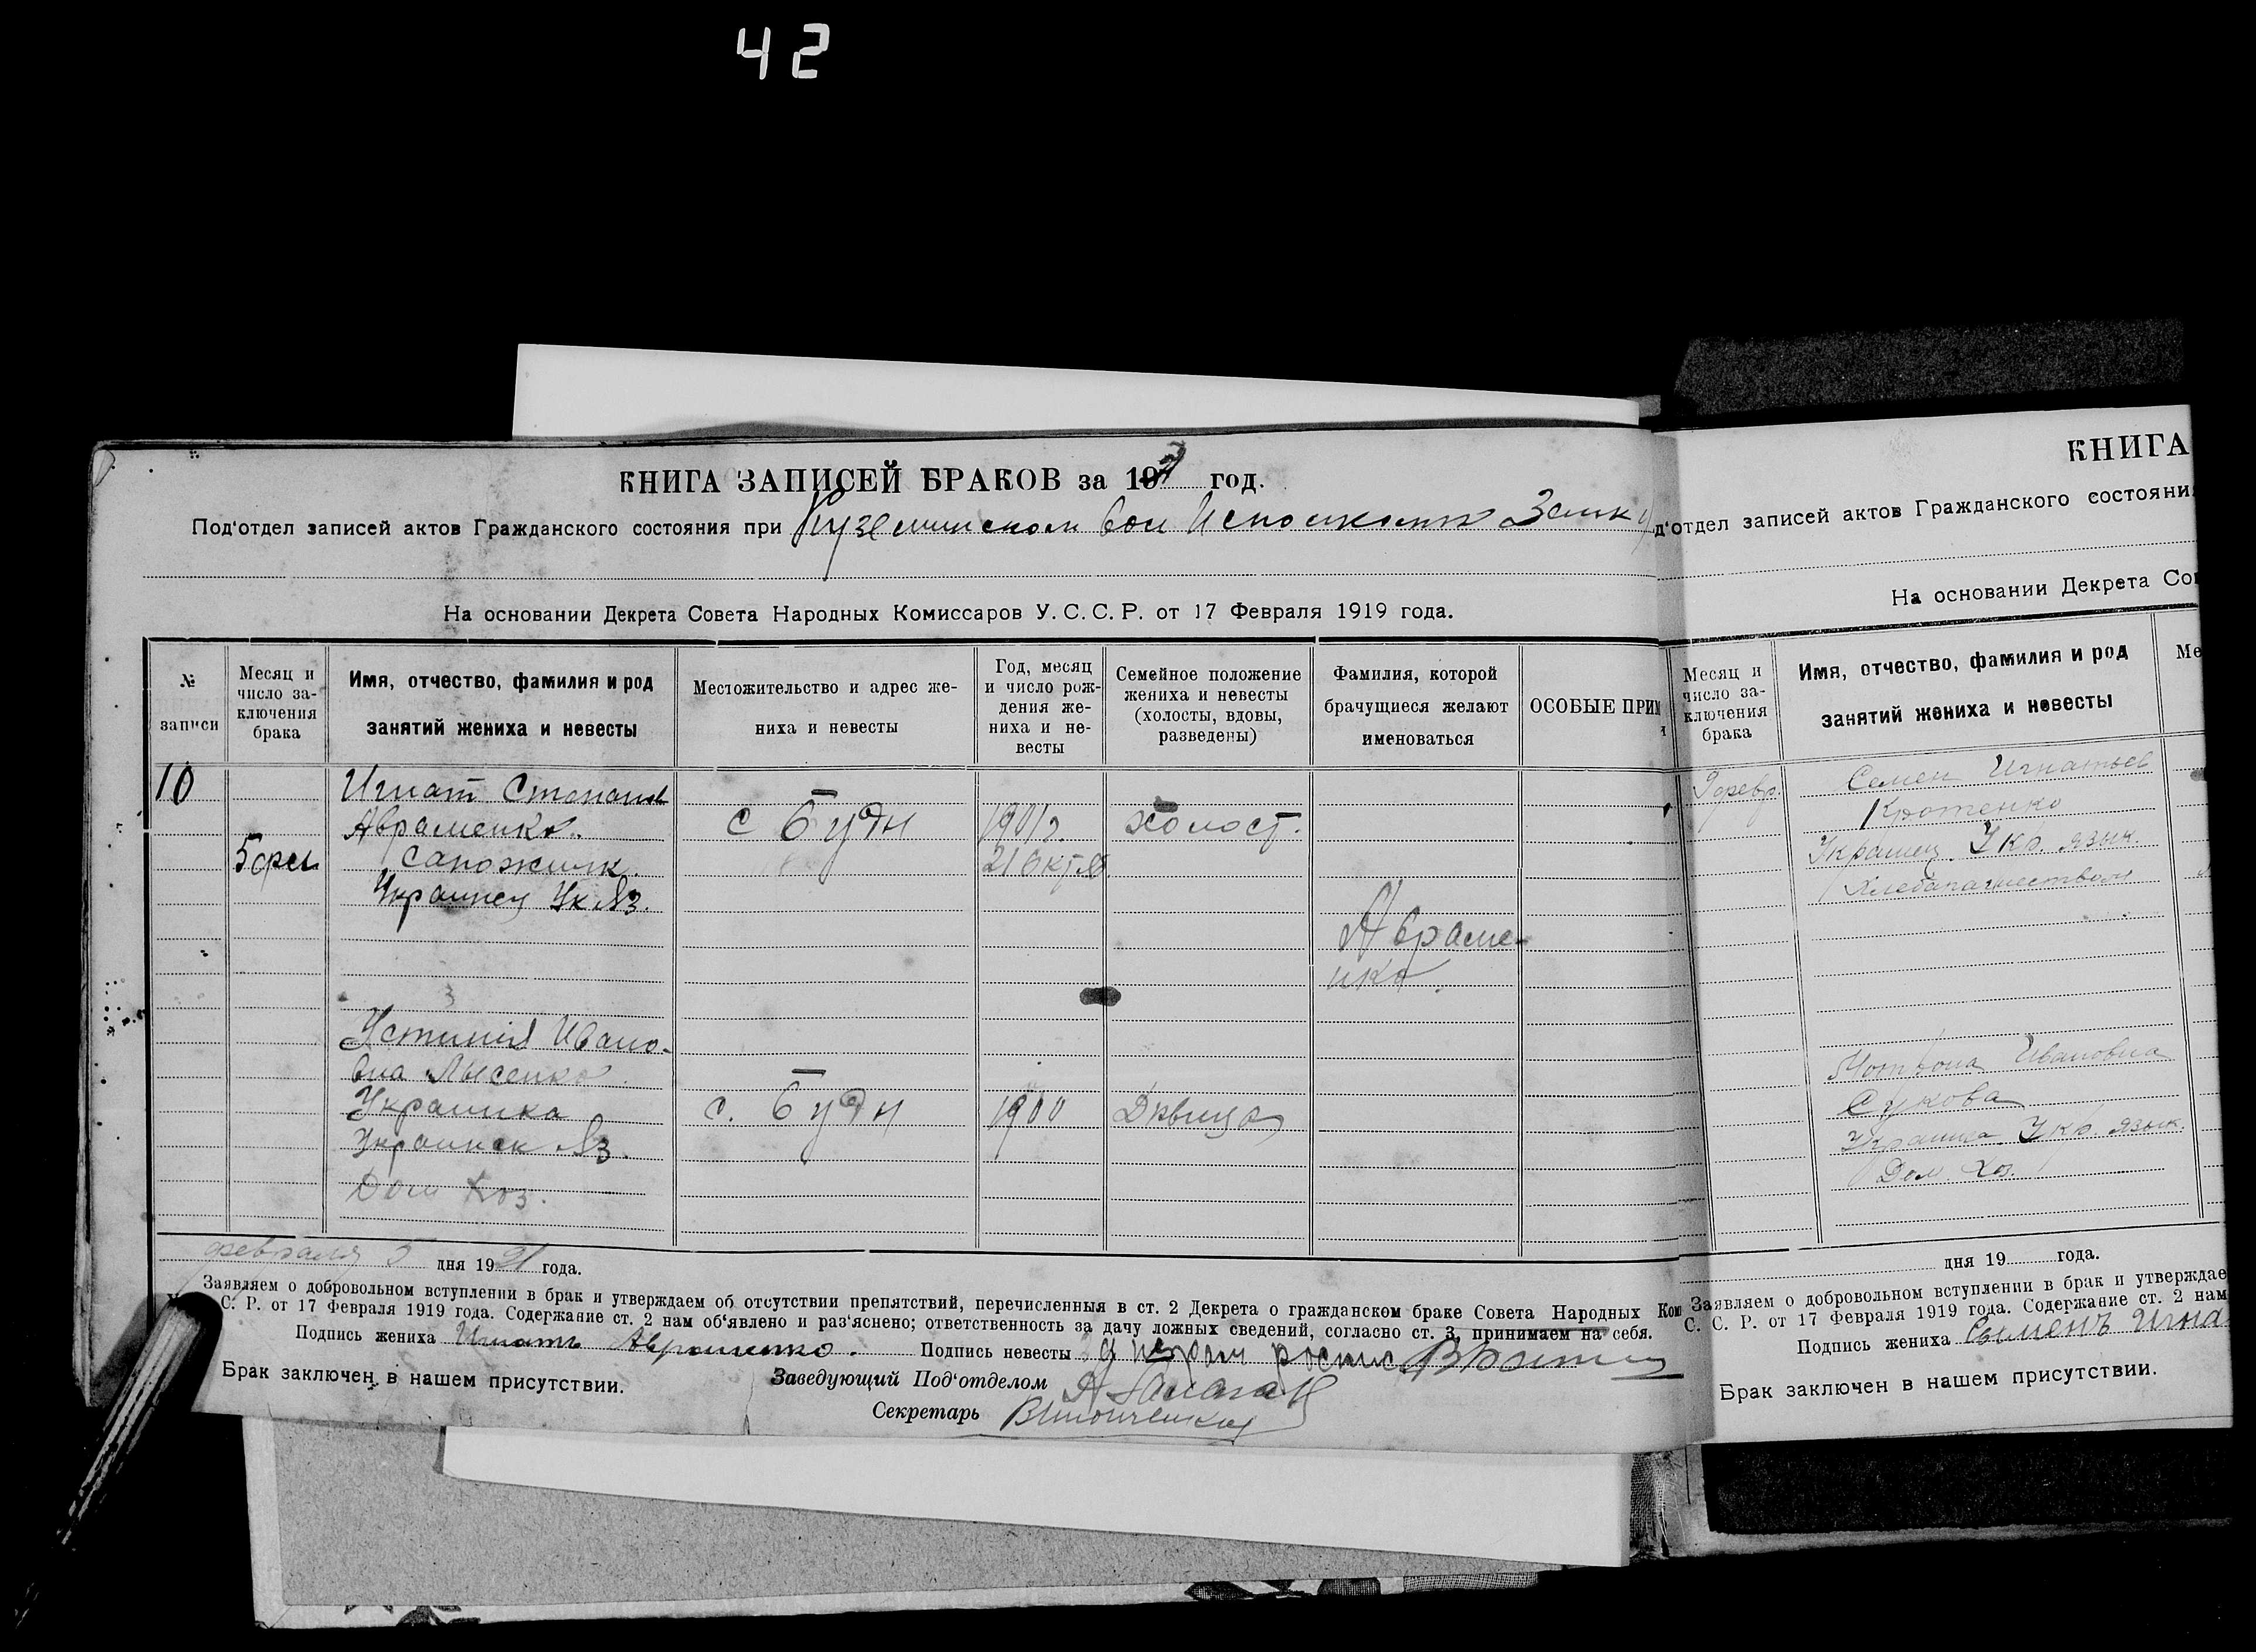 42
КНИГА ЗАПИСЕЙ БРАКОВ за 19 год.
Под'отдел записей актов Гражданского состояния при
На основании Декрета Совета Народных Комиссаров У.С.С.Р. от 17 Февраля 1919 года.
№ записи
Месяц и число за-
ключения
брака
Имя, отчество, фамилия и род
занятий жениха и невесты
Местожительство и адрес же-
ниха и невесты
Год, месяц
и число рож-
дения же-
ниха и не-
весты
Семейное положение
жениха и невесты
(холосты, вдовы,
разведены)
Фамилия, которой
брачущиеся желают
именоваться
ОСОБЫЕ ПРИМ
10
Игнат Степанов
Авраменко.
с Буди
1901г.
холост.
5 фев
Сапожник.
21 Октяб
Украинец Ук. Яз.
Авраме-
нко.
Устиния Ивано-
вна Лысенко.
Украинка
с. Буди
1900
Дѣвица
Украинск Яз.
Дом Хоз.
февраля 5 дня 1921 года.
Заявляем о добровольном вступлении в брак и утверждаем об отсутствии препятствий, перечисленныя в ст. 2 Декрета о гражданском браке Совета Народных Ком
С. Р. от 17 Февраля 1919 года. Содержание ст. 2 нам об'явлено и раз'яснено; ответственность за дачу ложных сведений, согласно ст. 3, принимаем на себя.
Подпись жениха Игнатъ Авраменко. Подпись невесты
Брак заключен в нашем присутствии.
Заведующий Под'отделом
Секретарь
КНИГА
д'отдел записей актов Гражданского состояни
На основании Декрета Со
Месяц и
число за-
ключения
брака
Имя, отчество, фамилия и род
занятий жениха и невесты
Ме
9 февр.
Семен Игнатьев
Кротенко
Украинец Укр. язык.
Хлебопашеством
Мотрона Ивановна
Сукова
Украинка Укр. язык.
Дом. Хоз.
дня 19 года.
Заявляем о добровольном вступлении в брак и утверждае
С. С. Р. от 17 Февраля 1919 года. Содержание ст. 2 нам
Подпись жениха Семенъ Игна
Брак заключен в нашем присутствии.